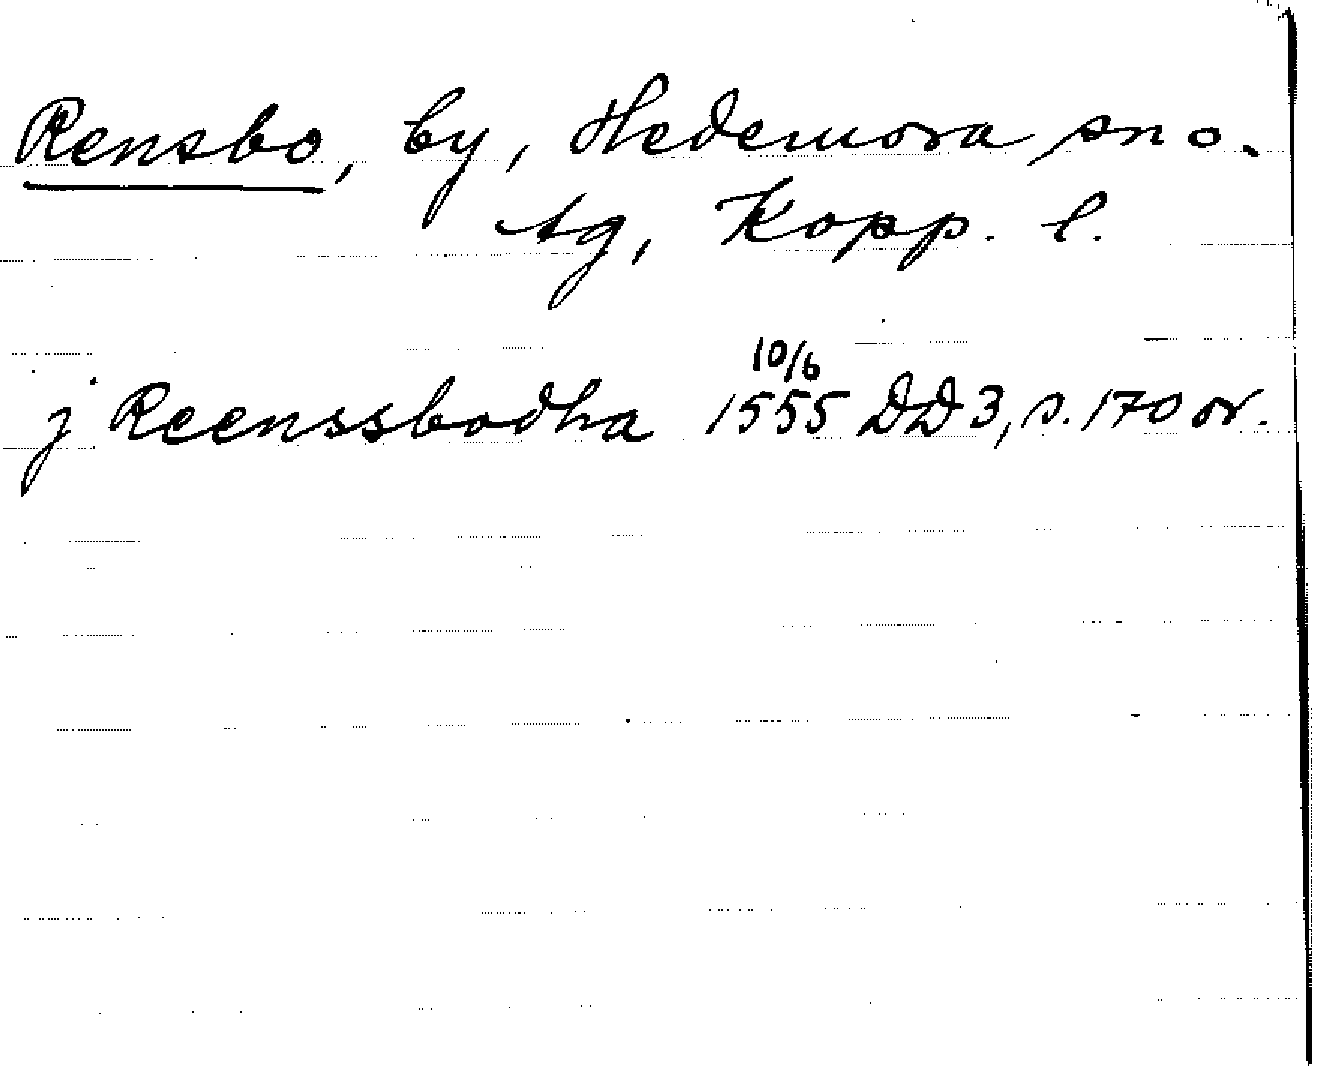 Rensbo, by, Hedemora sn o.
tg, Kopp. l.
10/6
j Reenssbodha 1555 DD 3, s. 170 or.